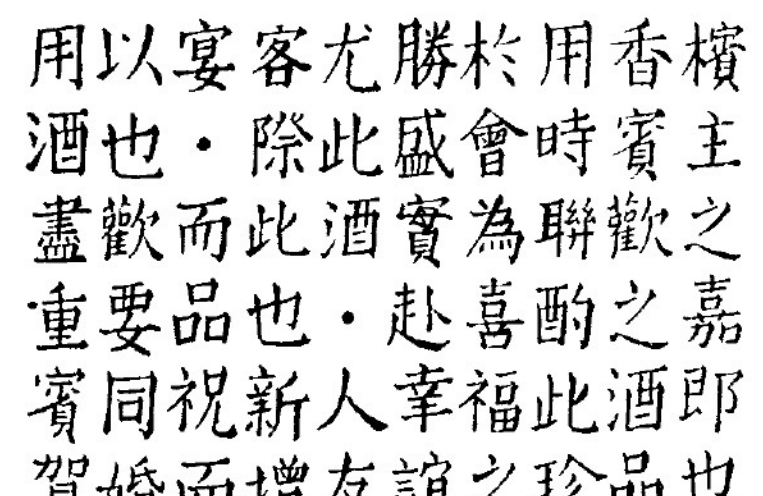 用以宴客尤勝於用香檳
酒也・際此盛會時賓主
盡歡而此酒實為聯歡之
・重要品也・赴喜酌之嘉
賓同祝新人幸福此酒即
賀婚而增友誼之珍品也